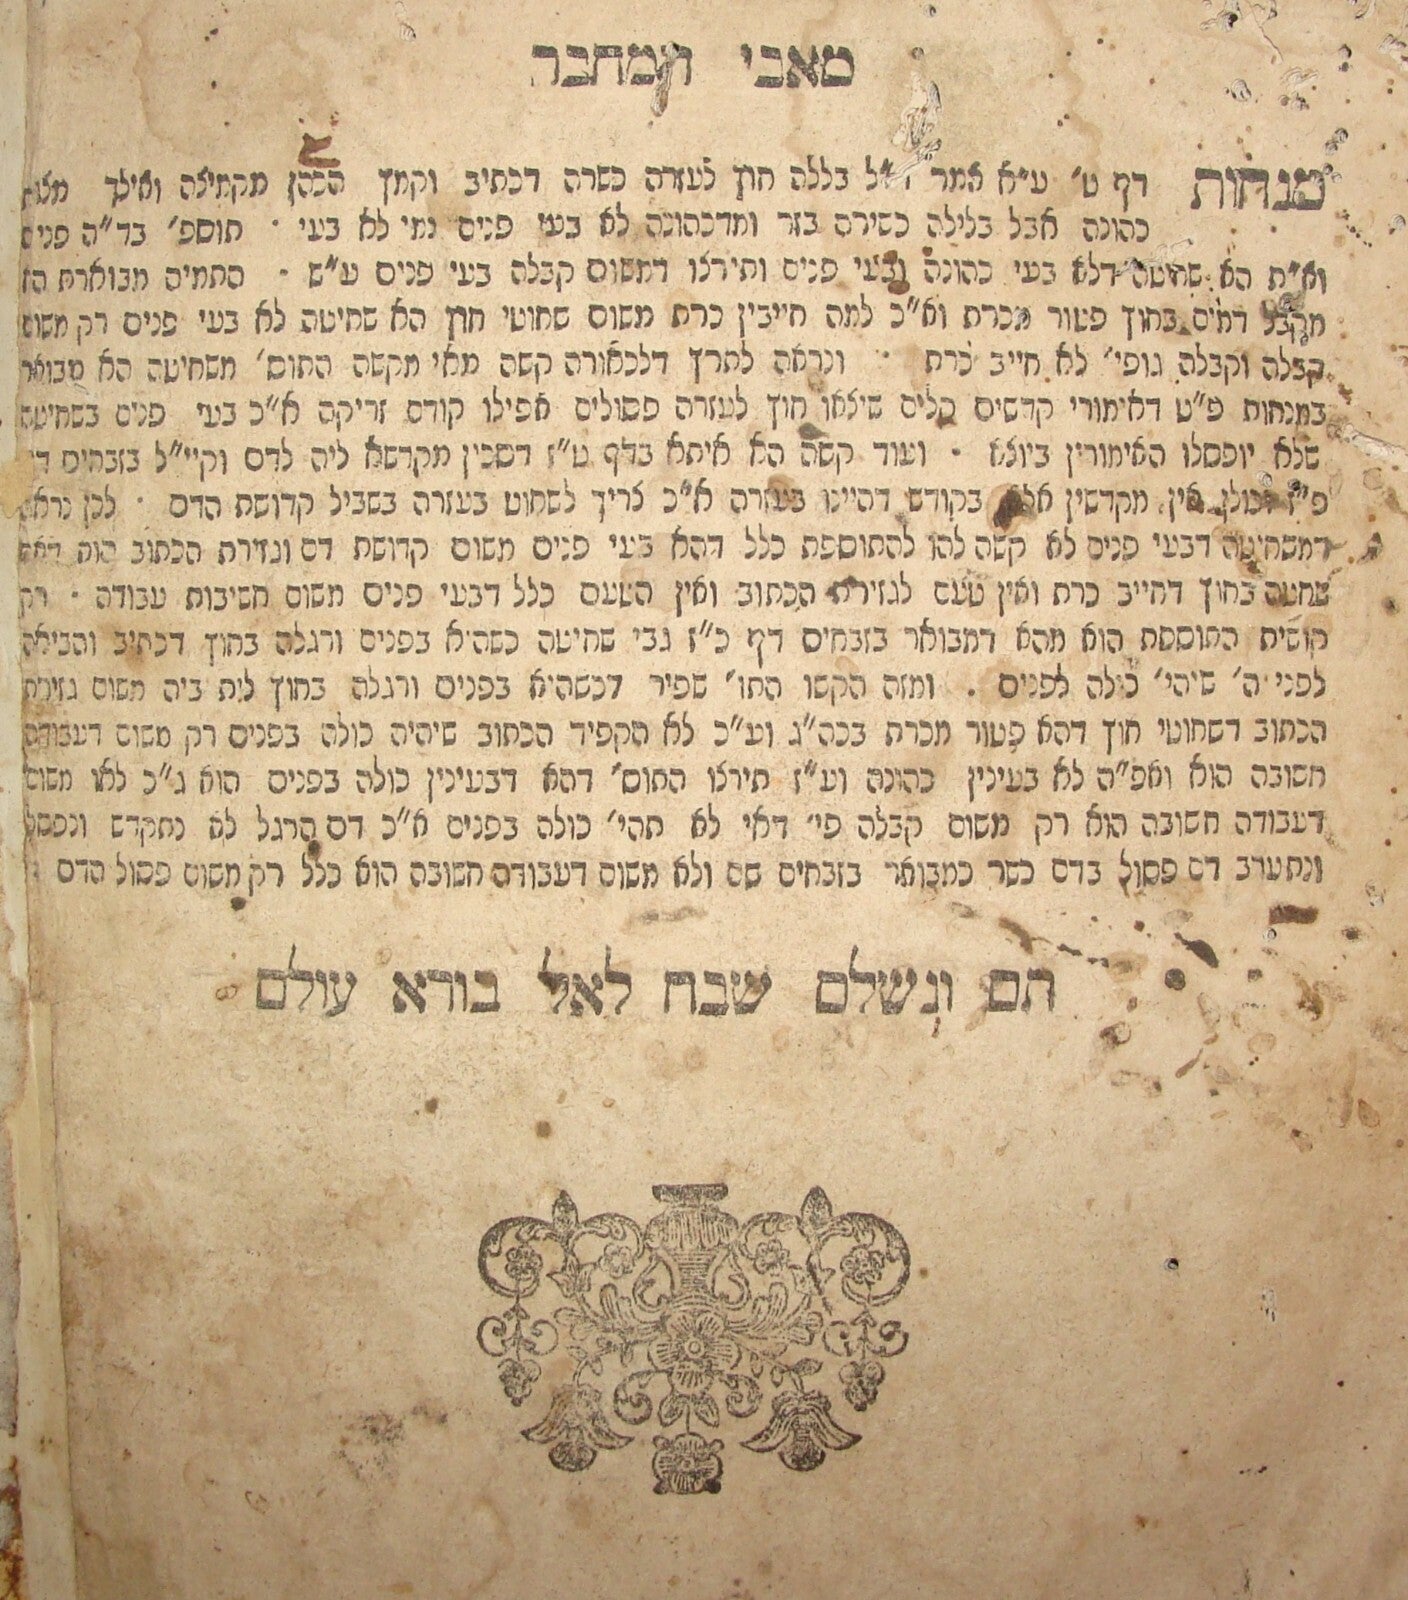 מאבי המחבר
מנחות דף ט' ע"א אמר בללה חוץ לעזרה כשרה דכתיב וקמץ הכהן מקמיצה ואילך מצות
כהונה אבל בלילה כשירה בזר ומדכהונה לא בעי פנים נמי לא בעי · תוספ' בד"ה פנים
וא"ת הא שחיטה דלא בעי כהונה ובעי פנים ותירצו דמשום קבלה בעי פנים ע"ש · התמיה מבוארת הא
מקבל דמים בחוץ פטור מכרת וא"כ למה חייבין כרת משום שחוטי חוץ הא שחיטה לא בעי פנים רק משום
קבלה וקבלה גופי' לא חייב כרת · ונראה לתרץ דלכאורה קשה מאי מקשה התוס' משחיטה הא מבואר
במנחות פ"ט דאימורי קדשים קלים שיצאו חוץ לעזרה פסולים אפילו קודם זריקה א"כ בעי פנים בשחיטה
שלא יופסלו האימורין ביוצא · ועוד קשה הא איתא בדף ט"ז דסכין מקדשא ליה לדם וקיי"ל בזבחים דף
פ"ח דכולן אין מקדשין אלא בקודש דהיינו בעזרה א"כ צריך לשחוט בעזרה בשביל קדושת הדם · לכן נראה
דמשחיטה דבעי פנים לא קשה להו להתוספת כלל דהא בעי פנים משום קדושת דם וגזירת הכתוב הוה דאם
שחטה בחוץ דחייב כרת ואין טעם לגזירת הכתוב ואין הטעם כלל דבעי פנים משום חשיבות עבודה · רק
קושית התוספת הוא מהא דמבואר בזבחים דף כ"ז גבי שחיטה כשהיא בפנים ורגלה בחוץ דכתיב והביאה
לפני ה' שיהי' כולה לפנים . ומזה הקשו התו' שפיר דכשהיא בפנים ורגלה בחוץ לית ביה משום גזירת
הכתוב דשחוטי חוץ דהא פטור מכרת בכה"ג וע"כ לא הקפיד הכתוב שיהיה כולה בפנים רק משום דעבודה
חשובה הוא ואפ"ה לא בעינין כהונה וע"ז תירצו התוס' דהא דבעינין כולה בפנים הוא ג"כ לאו משום
דעבודה חשובה הוא רק משום קבלה פי' דאי לא תהי' כולה בפנים א"כ דם הרגל לא נתקדש ונפסל
ונתערב דם פסול בדם כשר כמבואר בזבחים שם ולא משום דעבודה חשובה הוא כלל רק משום פסול הדם
תם ונשלם שבח לאל בורא עולם